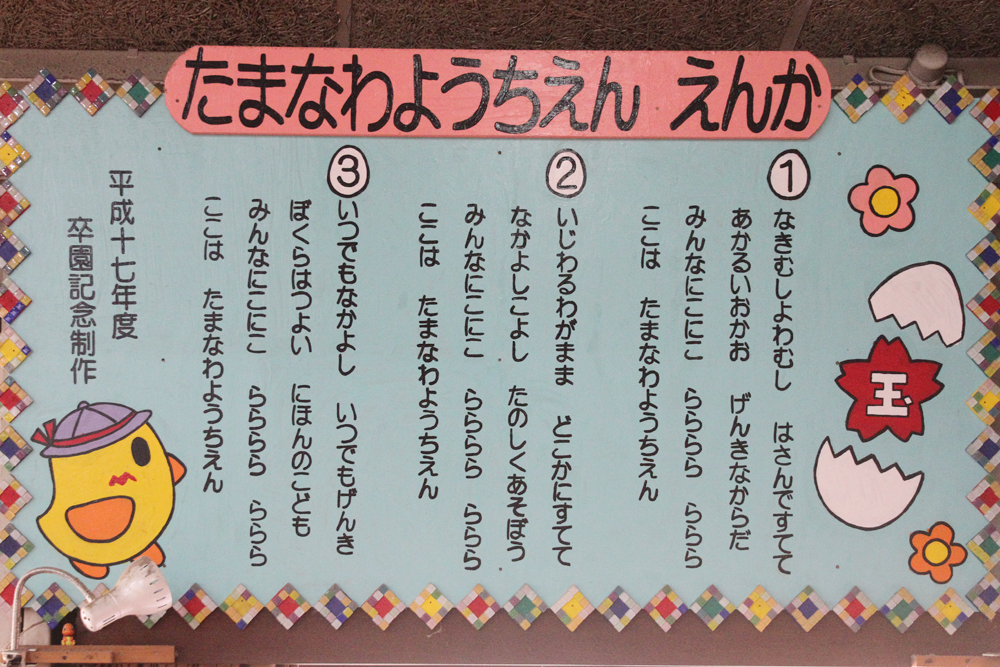 たまなわようちえん えんか
①
なきむしよわむし はさんですてて
あかるいおかお げんきなからだ
みんなにこにこ ららららら ららら
ここは たまなわようちえん
②
いじわるわがまま どこかにすてて
なかよしこよし たのしくあそぼう
みんなにこにこ ららららら ららら
ここは たまなわようちえん
③
いつでもなかよし いつでもげんき
ぼくらはつよい にほんのこども
みんなにこにこ ららららら ららら
ここは たまなわようちえん
平成十七年度
卒園記念制作
玉